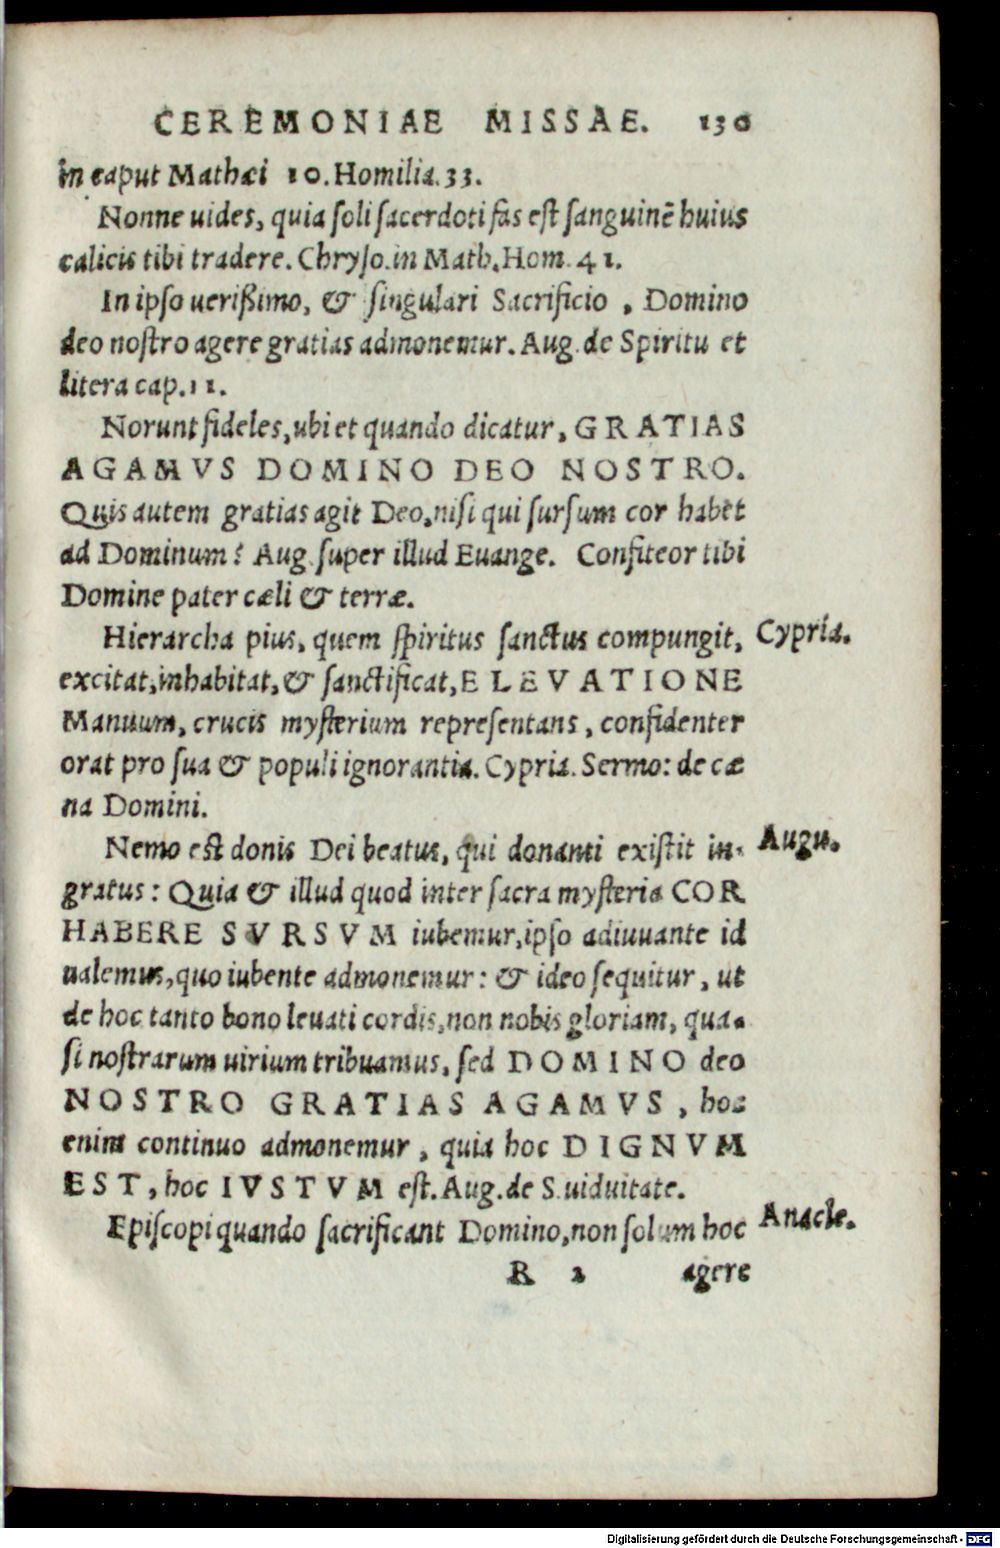 CEREMONIAE MISSAE. 130
in caput Mathæi 10. Homilia. 33.
Nonne uides, quia soli sacerdoti fas est sanguinẽ huius
calicis tibi tradere. Chryso. in Math. Hom. 41.
In ipso uerißimo, & singulari Sacrificio, Domino
deo nostro agere gratias admonemur. Aug. de Spiritu et
litera cap. 11.
Norunt fideles, ubi et quando dicatur, GRATIAS
AGAMVS DOMINO DEO NOSTRO.
Quis autem gratias agit Deo, nisi qui sursum cor habet
ad Dominum? Aug. super illud Euange. Confiteor tibi
Domine pater cæli & terræ.
Hierarcha pius, quem spiritus sanctus compungit, Cypria.
excitat, inhabitat, & sanctificat, ELEVATIONE
Manuum, crucis mysterium representans, confidenter
orat pro sua & populi ignorantia. Cypria. Sermo: de cæ
na Domini.
Nemo est donis Dei beatus, qui donanti existit in- Augu.
gratus: Quia & illud quod inter sacra mysteria COR
HABERE SVRSVM iubemur, ipso adiuuante id
ualemus, quo iubente admonemur: & ideo sequitur, ut
de hoc tanto bono leuati cordis, non nobis gloriam, qua-
si nostrarum uirium tribuamus, sed DOMINO deo
NOSTRO GRATIAS AGAMVS, hoc
enim continuo admonemur, quia hoc DIGNVM
EST, hoc IVSTVM est. Aug. de S. uiduitate.
Episcopi quando sacrificant Domino, non solum hoc Anacle.
R 2 agere
Digitalisierung gefördert durch die Deutsche Forschungsgemeinschaft - DFG